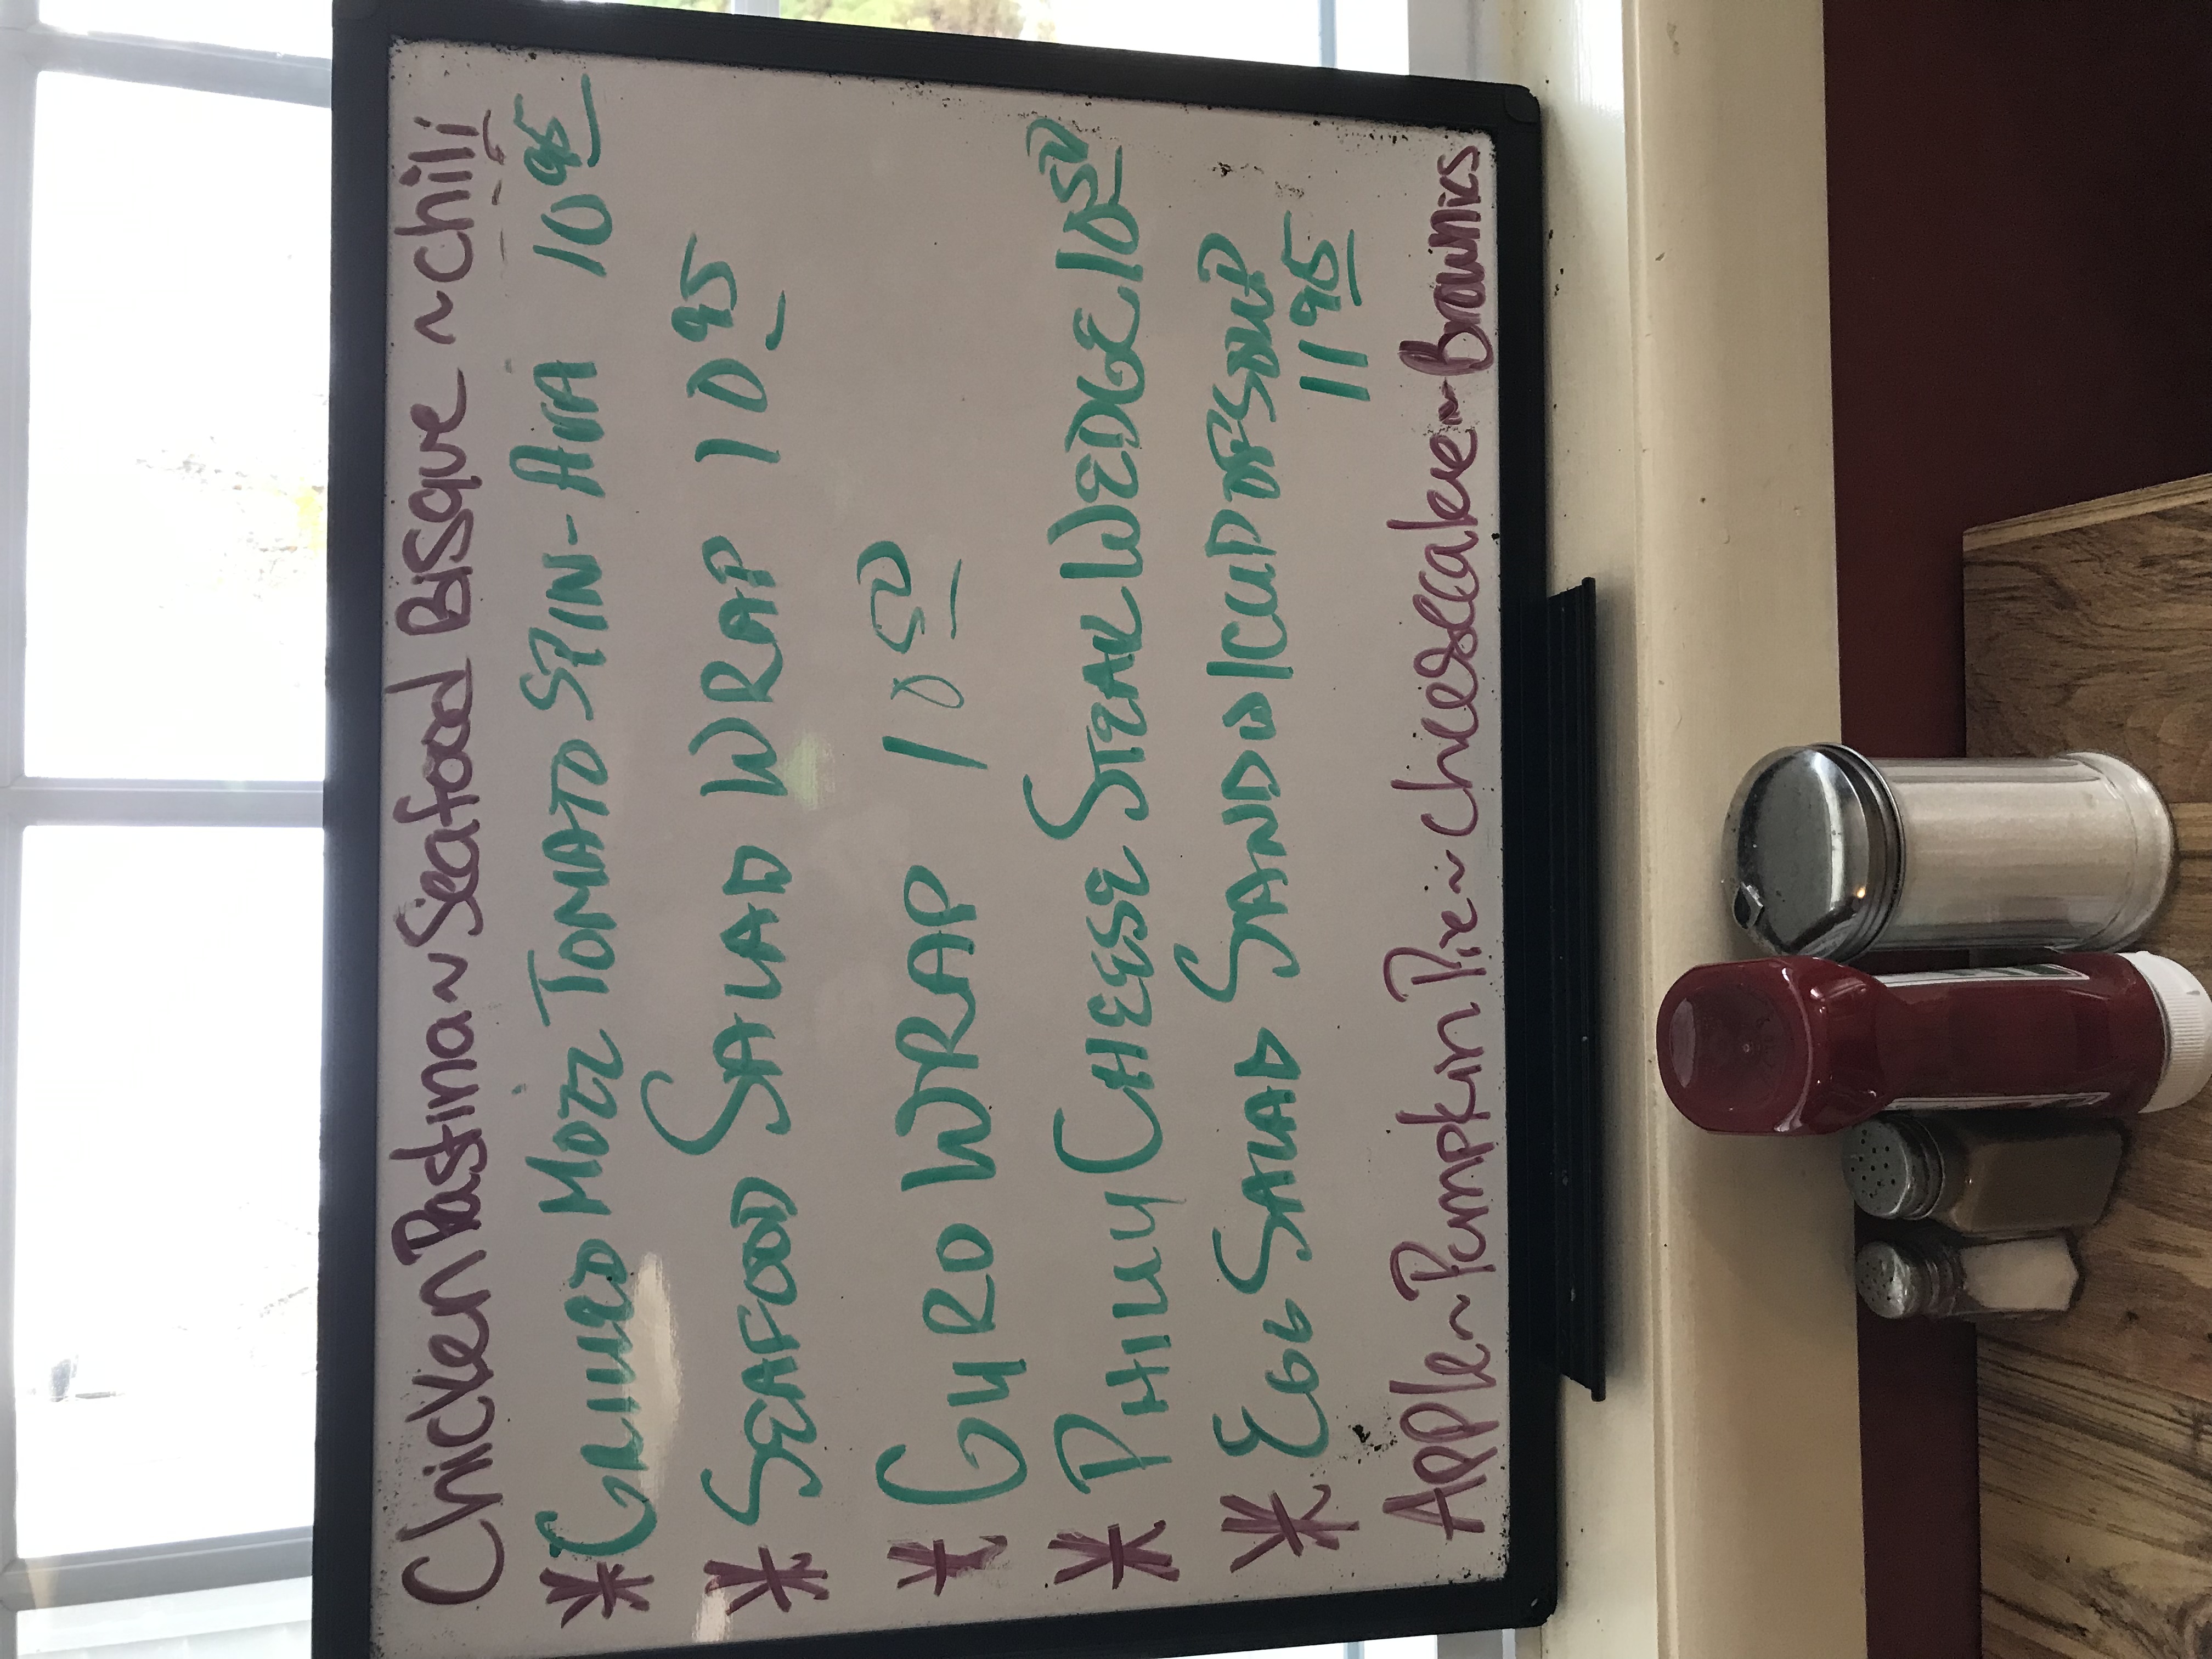 Chicken Pastina ~ Seafood Bisque ~ Chili
* GRILLED MOZZ TOMATO SPIN-AVA 10 95
* SEAFOOD SALAD WRAP 10 95
* GYRO WRAP 10 50
* PHILLY CHEESE STEAK WEDGE 10 50
* EGG SALAD SAND W/CUP OF SOUP
11 95
Apple ~ Pumpkin Pie ~ Cheesecake ~ Brownies